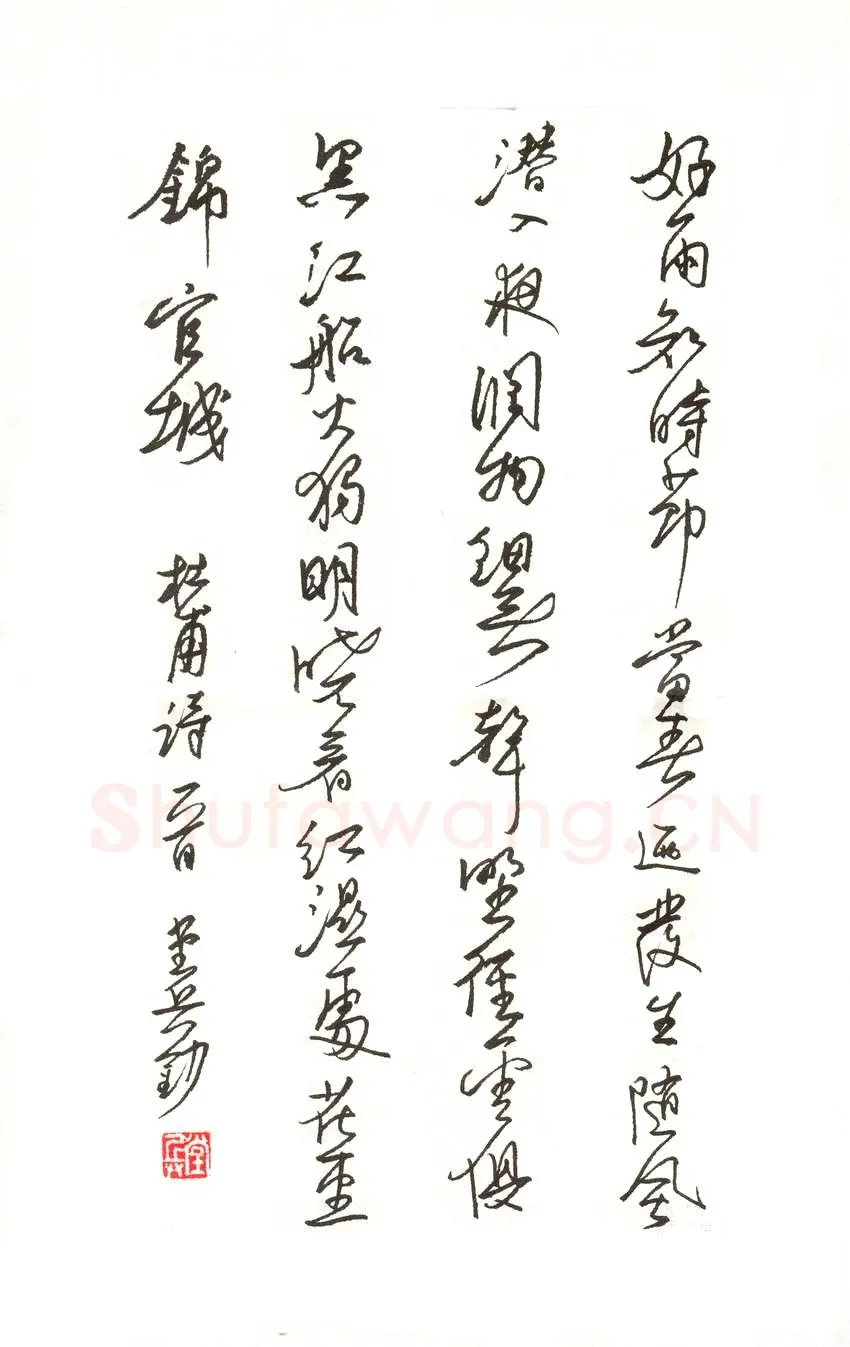 好雨知時節當春迺發生随風
潜入夜潤物細無聲野徑雲俱
黑江船火獨明曉看紅濕處花重
錦官城 杜甫詩一首
Shufawang.CN